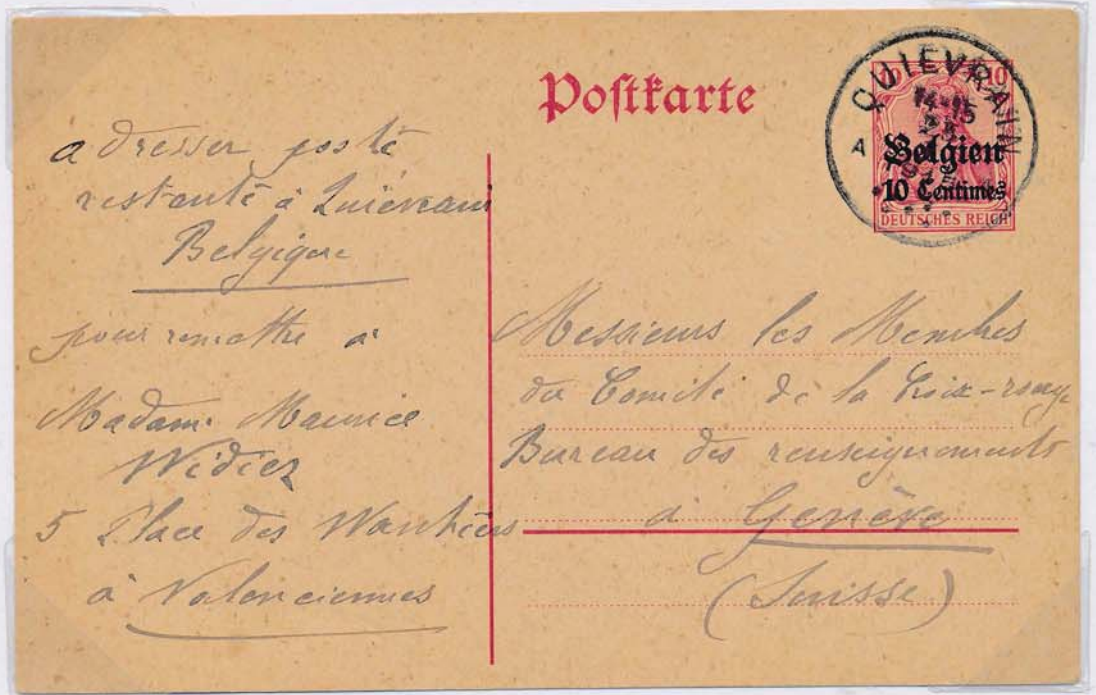 Postkarte
QUIEVRAIN
14-15
A
10 10
Belgien
10 Centimes
DEUTSCHES REICH
adresser poste
restante à Quiévrain
Belgique
pour remettre à
Madame Maurice
Widiez
5 Place des
à Valenciennes
Messieurs les Membres
du Comité de la Croix-rouge
Bureau des renseignements
à Genève
(Suisse)